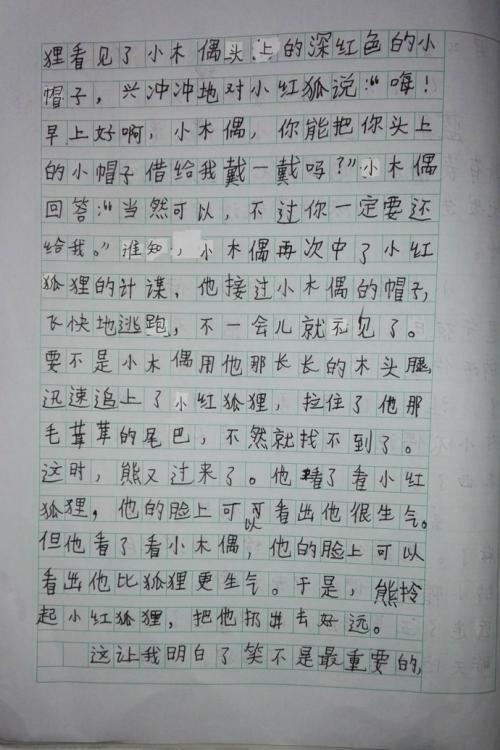 狸看见了小木偶头上的深红色的小
帽子，兴冲冲地对小红狐说：“嗨！
早上好啊，小木偶，你能把你头上
的小帽子借给我戴一戴吗？”小木偶
回答：“当然可以，不过你一定要还
给我。”谁知，小木偶再次中了小红
狐狸的计谋，他接过小木偶的帽子，
飞快地逃跑，不一会儿就不见了。
要不是小木偶用他那长长的木头腿
迅速追上了小红狐狸，拉住了他那
毛茸茸的尾巴，不然就找不到了。
这时，熊又过来了。他看了看小红
狐狸，他的脸上可可以看出他很生气。
但他看了看小木偶，他的脸上可以
看出他比狐狸更生气。于是，熊拎
起小红狐狸，把他扔出去好远。
这让我明白了笑不是最重要的，